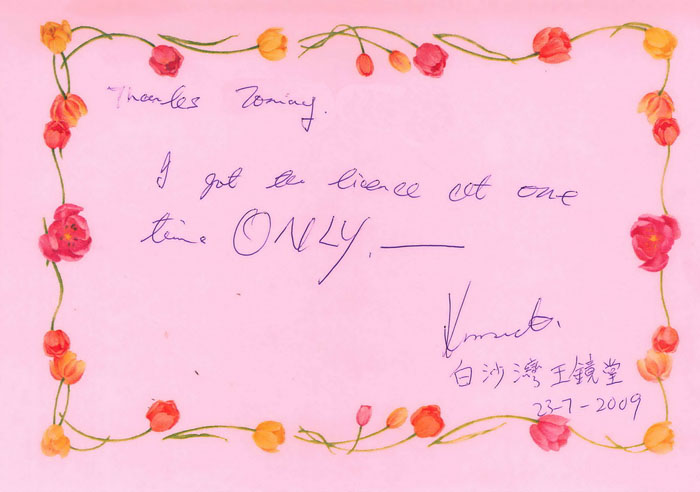 Thanks Tommy.
I got the licence at one
time ONLY.
白沙灣王鏡堂
23-7-2009